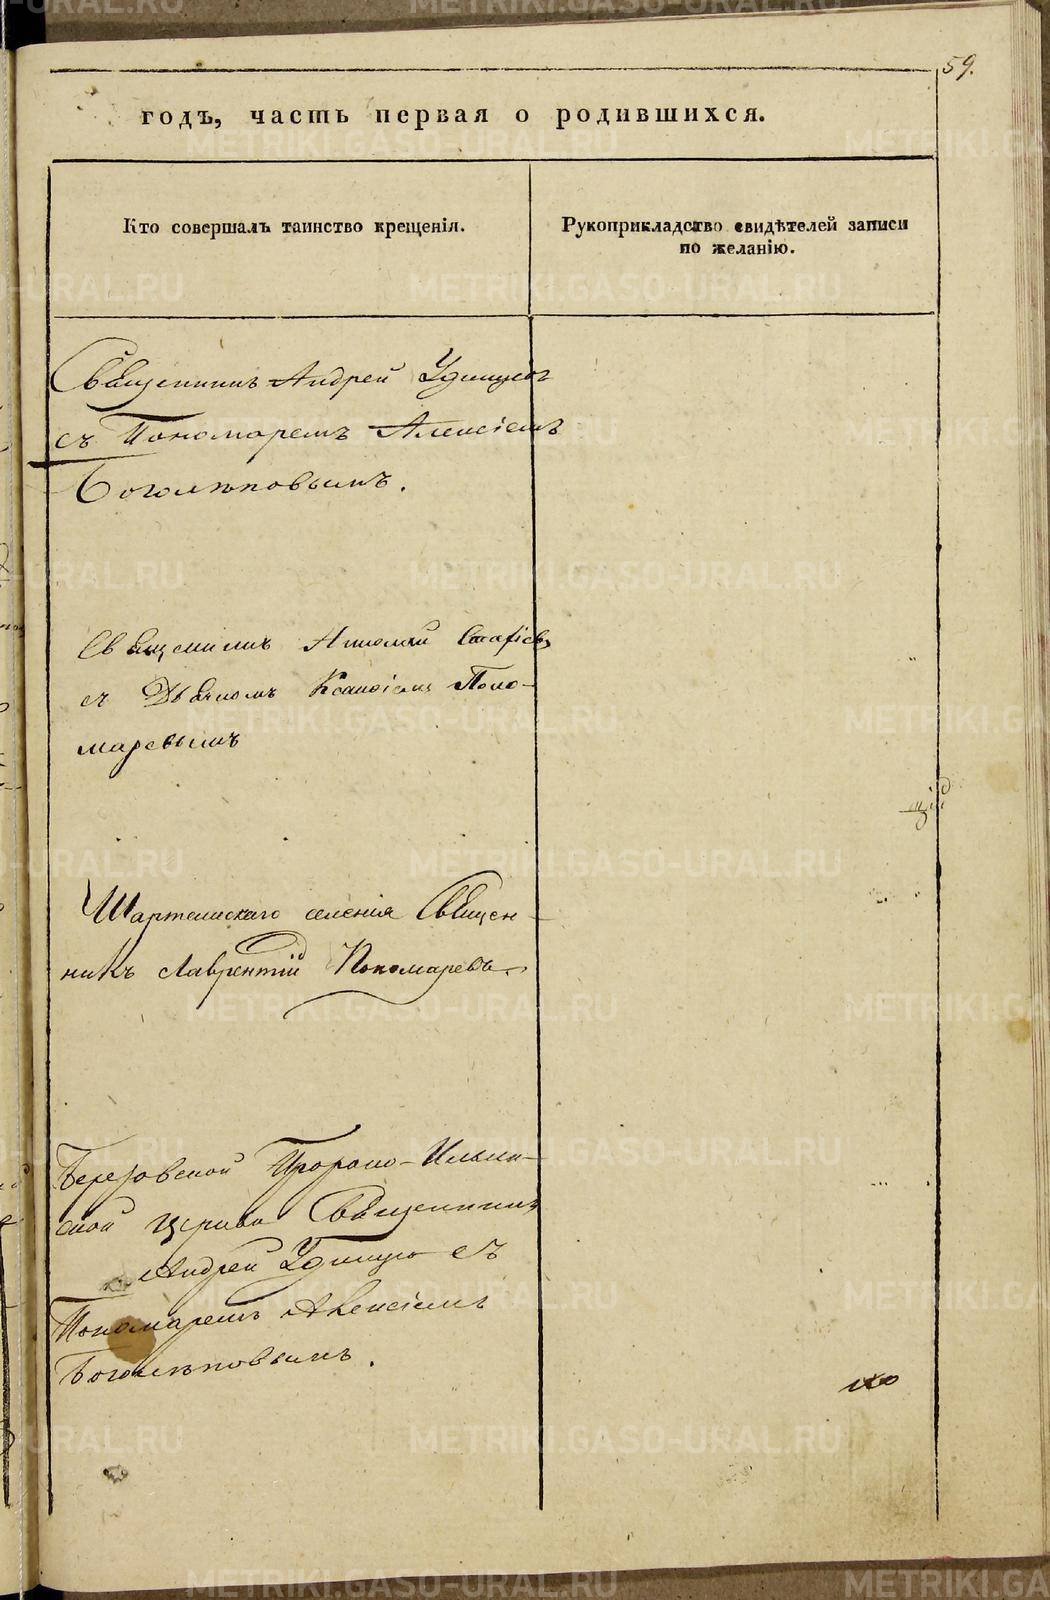 59.
годъ, часть первая о родившихся.
Кто совершалъ таинство крещенія.
Рукоприкладство свидѣтелей записи
по желанію.
Священникъ Андрей Удинцов
съ Пономаремъ Алексіемъ
Боголѣповымъ.
Священникъ
съ Дьячкомъ Ксанфіемъ Поно-
маревымъ
Шарташскаго селенія Священ-
никъ Лаврентій Пономаревъ
Березовской Пророко-Ильин-
ской церкви Священникъ
Андрей Удинцов съ
Пономаремъ Алексіемъ
Боголѣповымъ.
METRIKI.GASO-URAL.RU